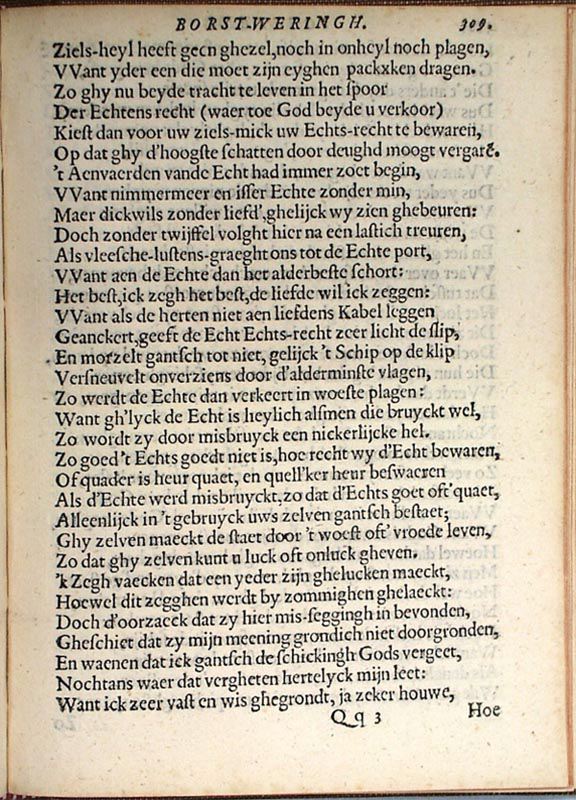 BORST-WERINGH. 309.
Ziels-heyl heeft geen ghezel, noch in onheyl noch plagen,
VVant yder een die moet zijn eyghen packxken dragen.
Zo ghy nu beyde tracht te leven in het ſpoor
Der Echtens recht (waer toe God beyde u verkoor)
Kieſt dan voor uw ziels-mick uw Echts-recht te bewaren,
Op dat ghy d'hoogſte ſchatten door deughd moogt vergarē.
't Aenvaerden vande Echt had immer zoet begin,
VVant nimmermeer en iſſer Echte zonder min,
Maer dickwils zonder liefd', ghelijck wy zien ghebeuren:
Doch zonder twijffel volght hier na een laſtich treuren,
Als vleeſche-luſtens-graeght ons tot de Echte port,
VVant aen de Echte dan het alderbeſte ſchort:
Het beſt, ick zegh het beſt, de liefde wil ick zeggen:
VVant als de herten niet aen liefdens Kabel leggen
Geanckert, geeft de Echt Echts-recht zeer licht de ſlip,
En morzelt gantſch tot niet, gelijck 't Schip op de klip
Verſneuvelt onverziens door d'alderminſte vlagen,
Zo werdt de Echte dan verkeert in woeſte plagen:
Want gh'lyck de Echt is heylich alſmen die bruyckt wel,
Zo wordt zy door misbruyck een nickerlijcke hel.
Zo goed 't Echts goedt niet is, hoe recht wy d'Echt bewaren,
Of quader is heur quaet, en quell'ker heur beſwaeren
Als d'Echte werd misbruyckt, zo dat d'Echts goet oft' quaet,
Alleenlijck in 't gebruyck uws zelven gantſch beſtaet;
Ghy zelven maeckt de ſtaet door 't woeſt oft' vroede leven,
Zo dat ghy zelven kunt u luck oft onluck gheven.
'k Zegh vaecken dat een yeder zijn ghelucken maeckt,
Hoewel dit zegghen werdt by zommighen ghelaeckt:
Doch d'oorzaeck dat zy hier mis-ſeggingh in bevonden,
Gheſchiet dat zy mijn meening grondich niet doorgronden,
En waenen dat ick gantſch de ſchickingh Gods vergeet,
Nochtans waer dat vergheten hertelyck mijn leet:
Want ick zeer vaſt en wis ghegrondt, ja zeker houwe,
Qq 3 Hoe